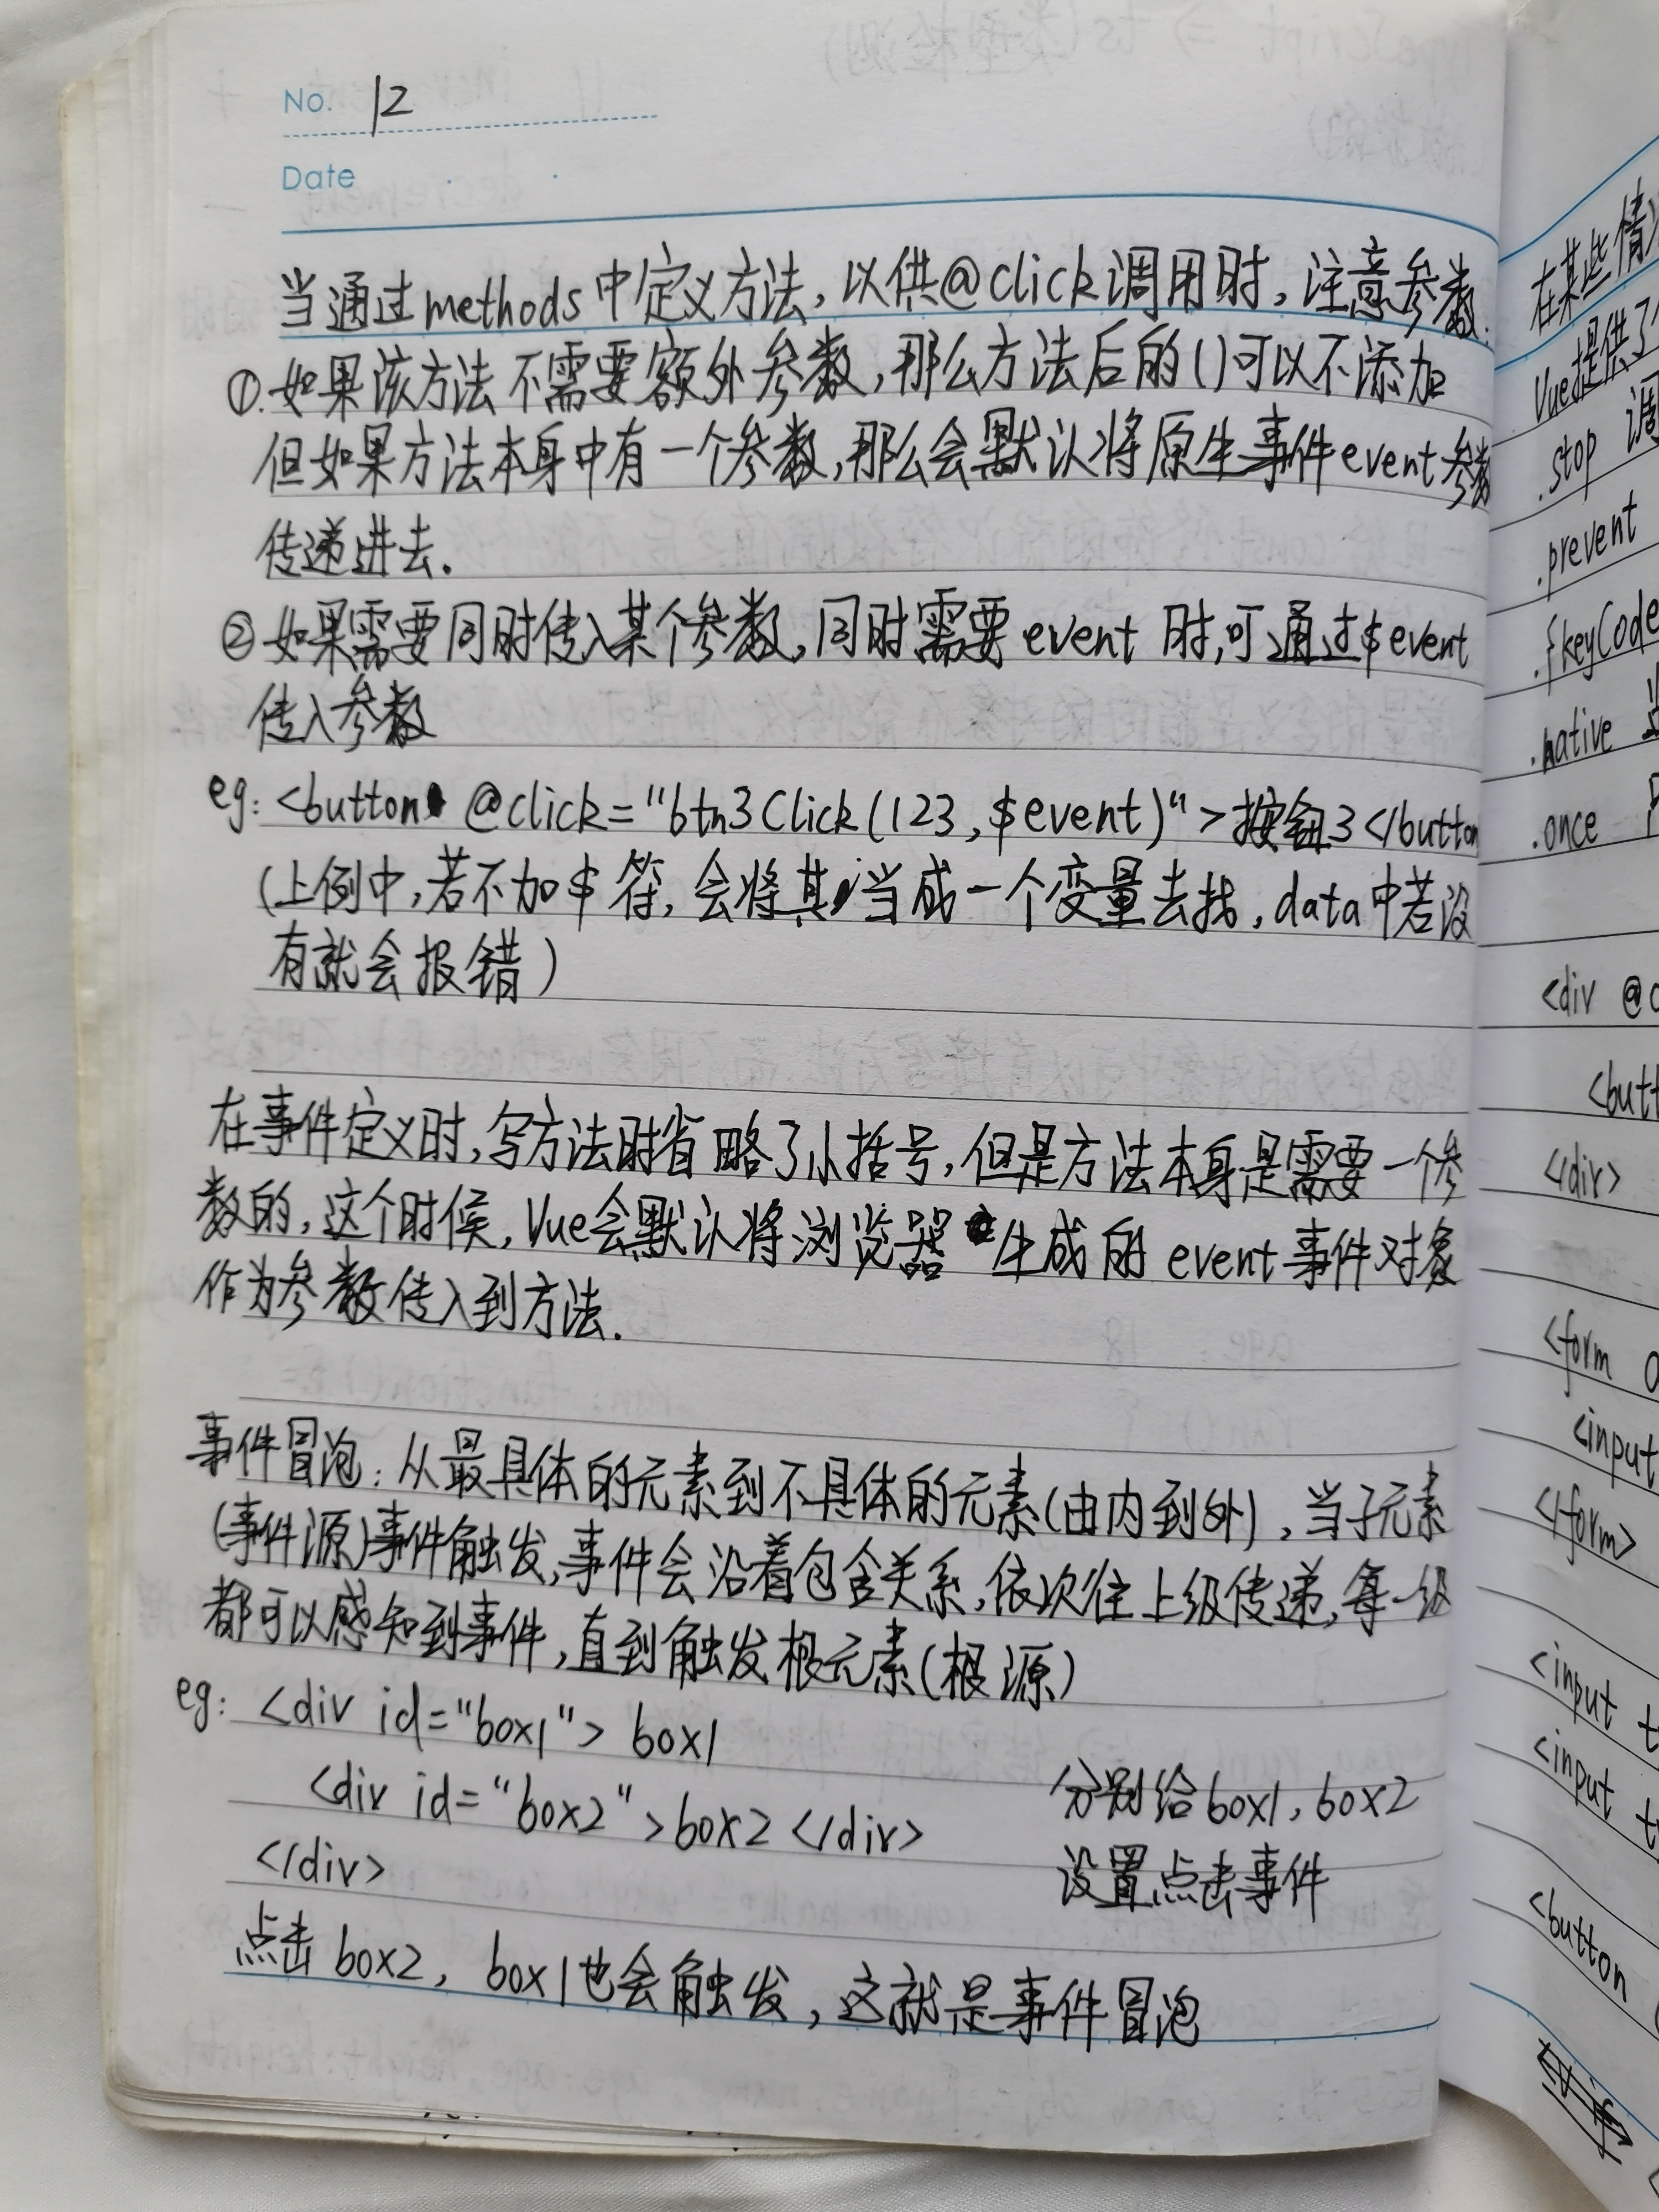 No. 12
Date
当通过methods中定义方法,以供@click调用时,注意参数.
①.如果该方法不需要额外参数,那么方法后的()可以不添加
但如果方法本身中有一个参数,那么会默认将原生事件event参数
传递进去.
②如果需要同时传入某个参数,同时需要event 时,可通过$event
传入参数
eg: <button @click="btn3Click(123,$event)">按钮3</button
(上例中,若不加$符,会将其当成一个变量去找,data中若没
有就会报错)
在事件定义时,写方法时省略了小括号,但是方法本身是需要一个参
数的,这个时候,Vue会默认将浏览器生成的event事件对象
作为参数传入到方法.
事件冒泡:从最具体的元素到不具体的元素(由内到外),当子元素
(事件源)事件触发,事件会沿着包含关系,依次往上级传递,每一级
都可以感知到事件,直到触发根元素(根源)
eg: <div id="box1"> box1
<div id="box2">box2 </div>
</div>
分别给box1,box2
设置点击事件
点击box2, box1也会触发,这就是事件冒泡
在某些情
Vue提供了
.stop 调
.prevent
.{keyCode
.native
.once
<div @c
<butt
</div>
<form
<input
</form>
<input t
<input t
<button